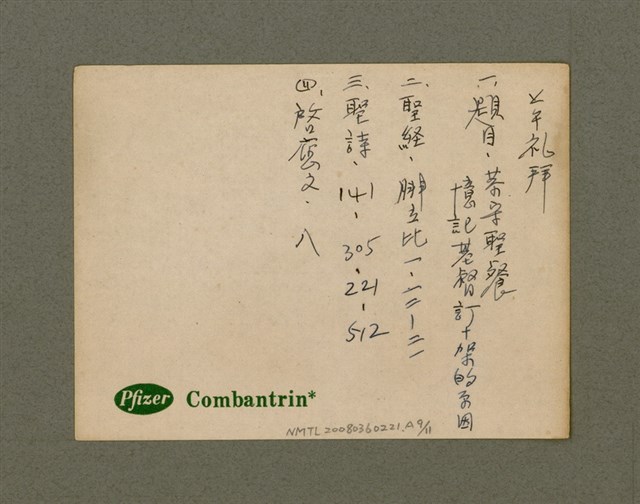 上午礼拜
一、題目、恭守聖餐
憶記基督訂十架的原因
二、聖経、腓立比一、二一二一
三、聖詩、141、305、221、512
四、啟應文、八
Pfizer Combantrin*
NMTL20080360221.A 9/11